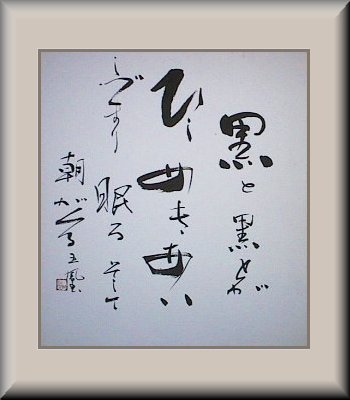 黒と黒とが
ひしめきあい
しづまり眠るそして
朝がくる